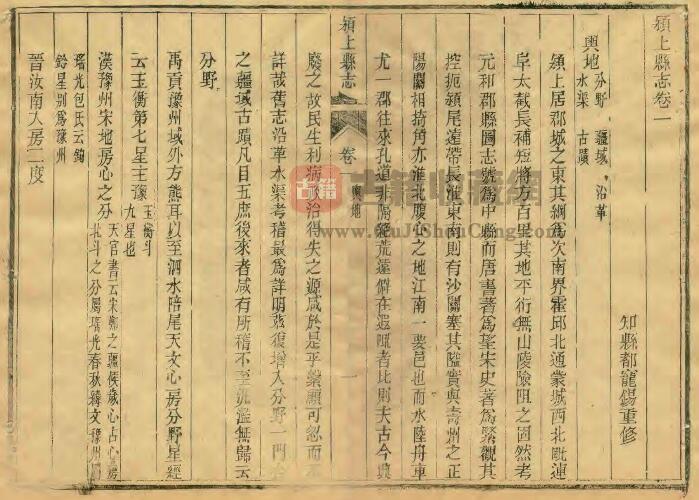 潁上縣志卷一
知縣都寵錫重修
輿地 分野 疆域 沿革
水渠 古蹟
潁上居郡城之東其綱為次南界霍邱北通蒙城西北既連
阜太截長補短將方百里其地平衍無山陵險阻之固然考
元和郡縣圖志號為中縣而唐書著為望宋史著為緊觀其
控扼潁尾遠帶長淮東南則有沙關塞其隘實與壽州之正
陽關相掎角亦淮北腹心之地江南一要邑也而水陸舟車
尤一郡往來孔道非隔絕荒遠僻在遐陬者比則夫古今興
潁上縣志 卷一 輿地
廢之故民生利病政治得失之源咸於是乎繫顧可忽而不
詳哉舊志沿革水渠考稽最為詳明茲復增入分野一門合
之疆域古蹟凡目五庶後來者咸有所稽不至汎濫無歸云
分野
禹貢豫州域外方熊耳以至泗水陪尾天文心房分野星經
云玉衡第七星主豫 玉衡斗
九星也
漢豫州宋地房心之分 天官書云宋鄭之疆候歲心占心房
北斗之分屬瑤光春秋緯文豫州屬
瑤光包氏云鉤
鈐星別為豫州
晉汝南入房二度
www.GuJiShouCang.com
古籍
書籍收藏網